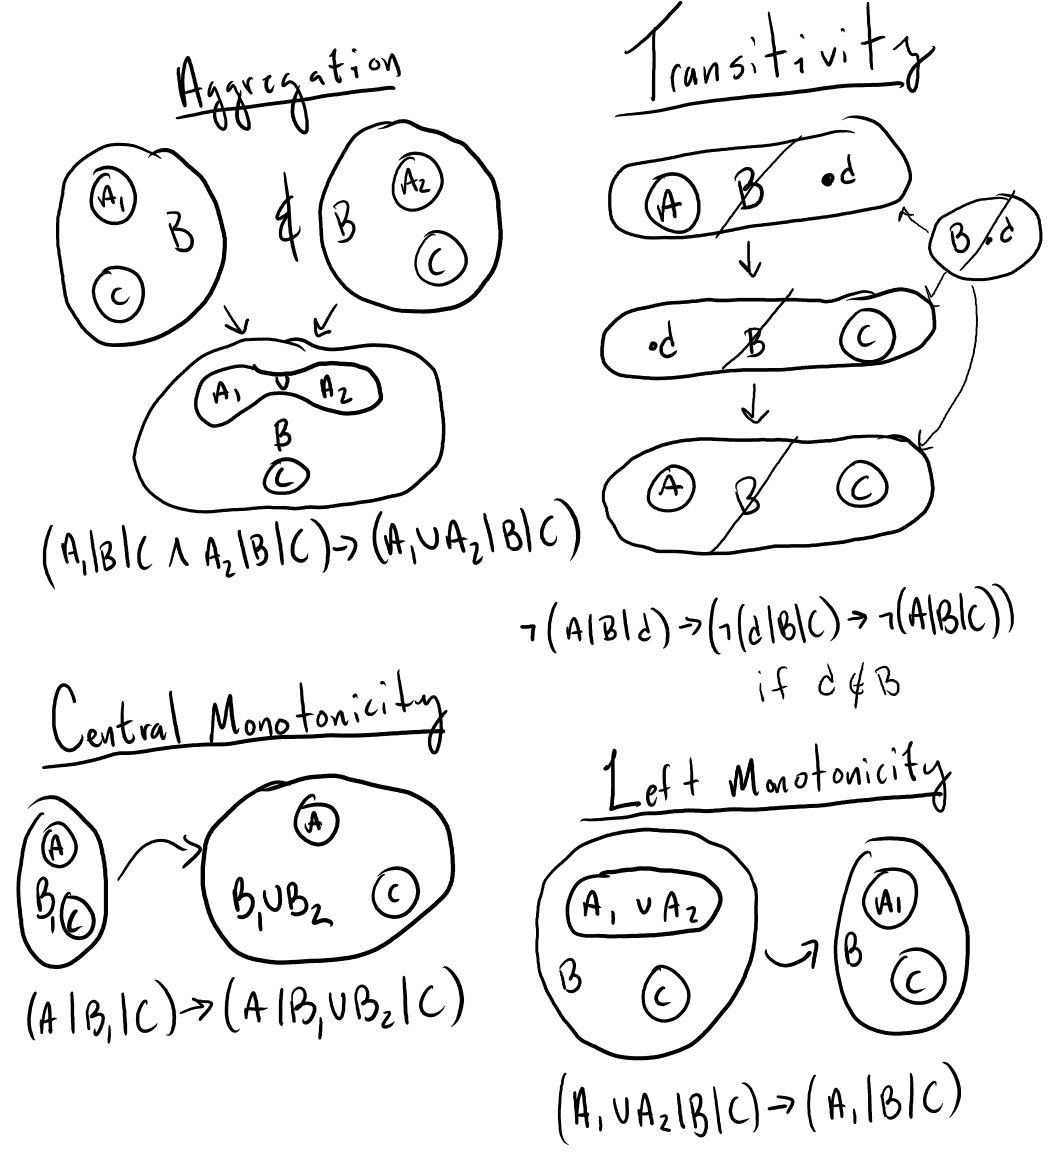 Aggregation
A₁ B C
&
A₂ B C
A₁ ∪ A₂
B
C
(A₁|B|C ∧ A₂|B|C)→(A₁∪A₂|B|C)
Transitivity
A B •d
B •d
•d B C
A B C
¬(A|B|d)→(¬(d|B|C)→¬(A|B|C))
if d∉B
Central Monotonicity
A
B₁ C
A
B₁∪B₂ C
(A|B₁|C)→(A|B₁∪B₂|C)
Left Monotonicity
A₁ ∪ A₂
B C
A₁
B
C
(A₁∪A₂|B|C)→(A₁|B|C)